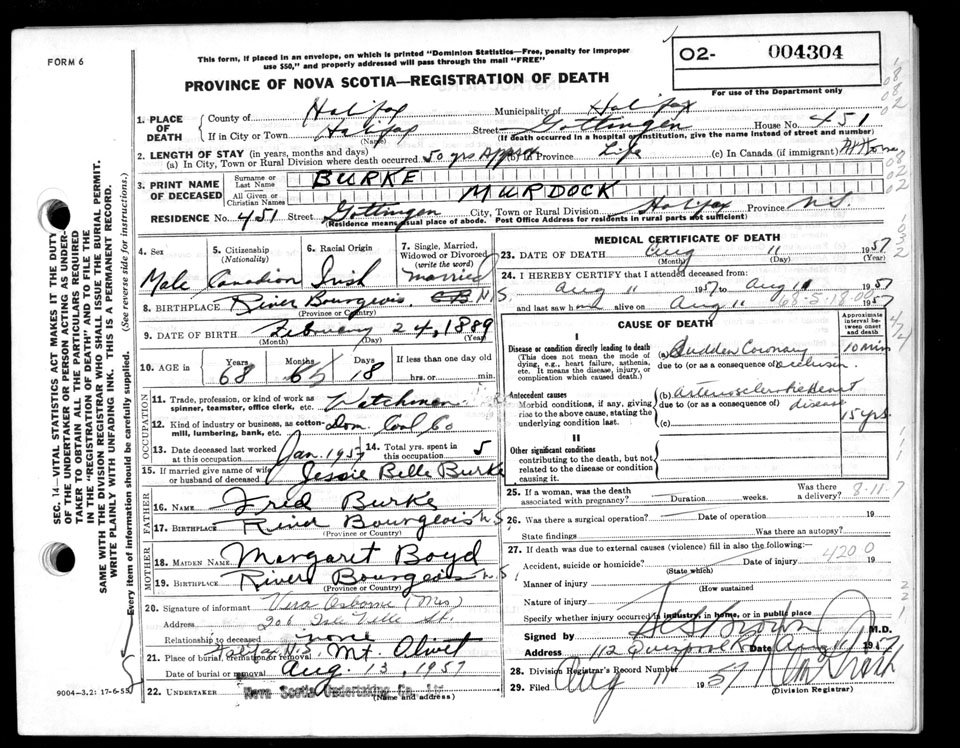 FORM 6
This form, if placed in an envelope, on which is printed "Dominion Statistics—Free, penalty for improper
use $50," and properly addressed will pass through the mail "FREE"
O2- 004304
For use of the Department only
PROVINCE OF NOVA SCOTIA—REGISTRATION OF DEATH
1. PLACE OF DEATH
County of Halifax Municipality of Halifax
If in City or Town Halifax Street Gottingen House No. 451
(Name) (If death occurred in a hospital or institution, give the name instead of street and number)
2. LENGTH OF STAY (in years, months and days)
(a) In City, Town or Rural Division where death occurred 50 yrs Approx (b) In Province Life (c) In Canada (if immigrant)
3. PRINT NAME OF DECEASED
Surname or Last Name BURKE
All Given or Christian Names MURDOCK
RESIDENCE No. 451 Street Gottingen City, Town or Rural Division Halifax Province N.S.
(Residence means usual place of abode. Post Office Address for residents in rural parts not sufficient)
4. Sex
Male
5. Citizenship (Nationality)
Canadian
6. Racial Origin
Irish
7. Single, Married, Widowed or Divorced (write the word)
married
8. BIRTHPLACE River Bourgeois. C.B. N.S.
(Province or Country)
9. DATE OF BIRTH February 24, 1889
(Month) (Day) (Year)
10. AGE in Years Months Days If less than one day old
68 65 18 hrs. or min.
OCCUPATION
11. Trade, profession, or kind of work as spinner, teamster, office clerk, etc. Watchman
12. Kind of industry or business, as cotton-mill, lumbering, bank, etc. Dom. Coal Co
13. Date deceased last worked at this occupation Jan. 1957
14. Total yrs. spent in this occupation 5
15. If married give name of wife or husband of deceased Jessie Belle Burke
FATHER
16. NAME Fred Burke
17. BIRTHPLACE River Bourgeois N.S.
(Province or Country)
MOTHER
18. MAIDEN NAME Margaret Boyd
19. BIRTHPLACE River Bourgeois N.S.
(Province or Country)
20. Signature of informant Vera Osborne (Mrs)
Address 206 St.
Relationship to deceased none
21. Place of burial, cremation or removal Halifax N.S. Mt. Olivet
Date of burial or removal Aug. 13, 1957
22. UNDERTAKER Nova Scotia Undertaking Co. Ltd
(Name and address)
9004-3,2: 17-6-55
SEC. 14—VITAL STATISTICS ACT MAKES IT THE DUTY
OF THE UNDERTAKER OR PERSON ACTING AS UNDER-
TAKER TO OBTAIN ALL THE PARTICULARS REQUIRED
IN THE "REGISTRATION OF DEATH" AND TO FILE THE
SAME WITH THE DIVISION REGISTRAR WHO SHALL ISSUE THE BURIAL PERMIT.
WRITE PLAINLY WITH UNFADING INK. THIS IS A PERMANENT RECORD.
Every item of information should be carefully supplied. (See reverse side for instructions.)
MEDICAL CERTIFICATE OF DEATH
23. DATE OF DEATH Aug 11 1957
(Month) (Day) (Year)
24. I HEREBY CERTIFY that I attended deceased from
Aug 11 1957 to Aug 11 1957
and last saw him alive on Aug 11 1957
68-5-18-00
CAUSE OF DEATH
Approximate interval between onset and death
I
Disease or condition directly leading to death
(This does not mean the mode of dying, e.g., heart failure, asthenia, etc. It means the disease, injury, or complication which caused death.)
(a) Sudden Coronary Occlusion 10 min
due to (or as a consequence of)
Antecedent causes
Morbid conditions, if any, giving rise to the above cause, stating the underlying condition last.
(b) Arteriosclerotic Heart disease 15 yrs
due to (or as a consequence of)
(c)
II
Other significant conditions
contributing to the death, but not related to the disease or condition causing it.
25. If a woman, was the death associated with pregnancy? Duration weeks. Was there a delivery?
8-11-7
26. Was there a surgical operation? Date of operation 19
State findings Was there an autopsy?
27. If death was due to external causes (violence) fill in also the following:—
Accident, suicide or homicide? Date of injury 19
(State which)
4200
Manner of injury
(How sustained
Nature of injury
Specify whether injury occurred in industry, in home, or in public place
Signed by Brown M.D.
Address 112 Quinpool Rd Date Aug 11 1957
28. Division Registrar's Record Number
29. Filed Aug 11 1957
(Division Registrar)